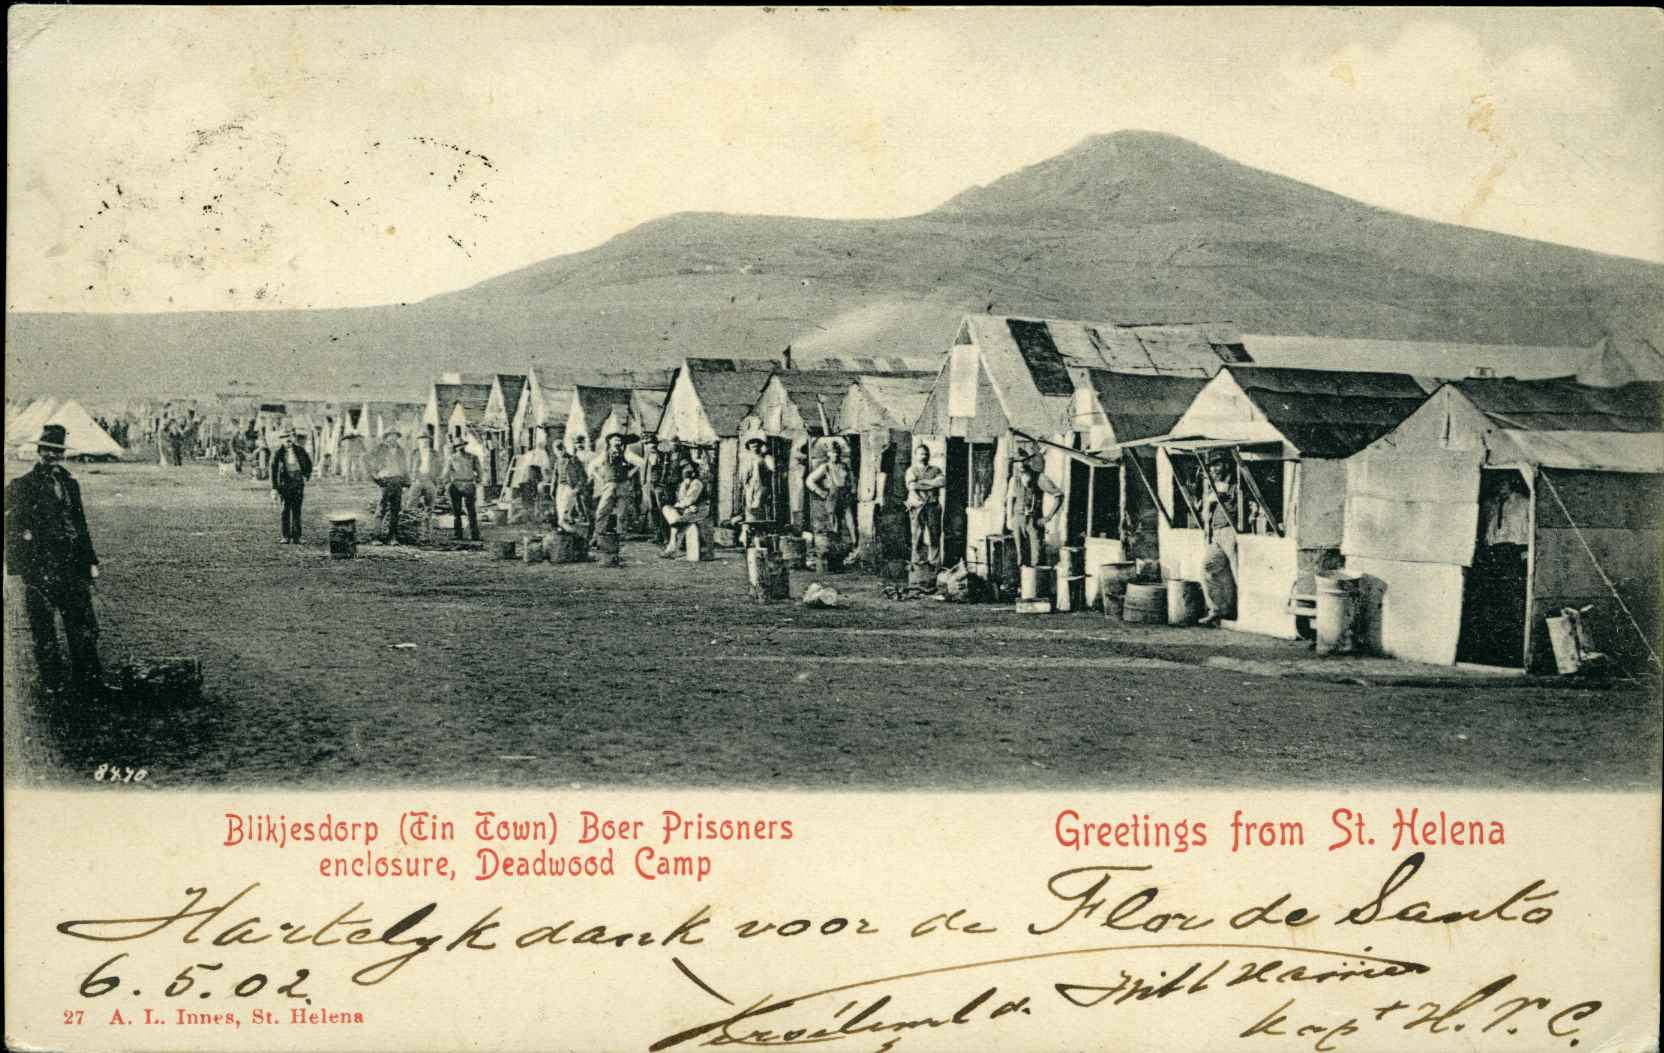 8470
Blikjesdorp (Tin Town) Boer Prisoners
enclosure, Deadwood Camp
Greetings from St. Helena
Hartelyk dank voor de Flor de Santo
6.5.02.
Kapt H.T.C.
27 A. L. Innes, St. Helena